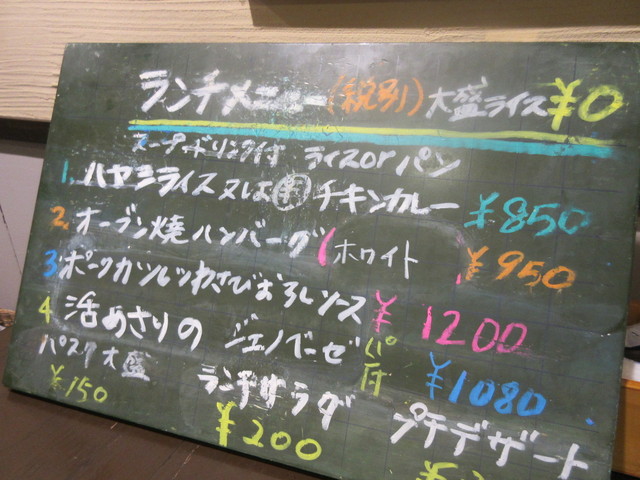 ランチメニュー(税別)大盛ライス¥0
スープ・ドリンク付 ライスorパン
1. ハヤシライス又は チキンカレー ¥850
2. オーブン焼ハンバーグ(ホワイト ¥950
3. ポークカツレツわさびおろしソース ¥1200
4 活あさりの ジェノベーゼ パン付 ¥1080
パスタ大盛 ¥150
ランチサラダ ¥200
プチデザート